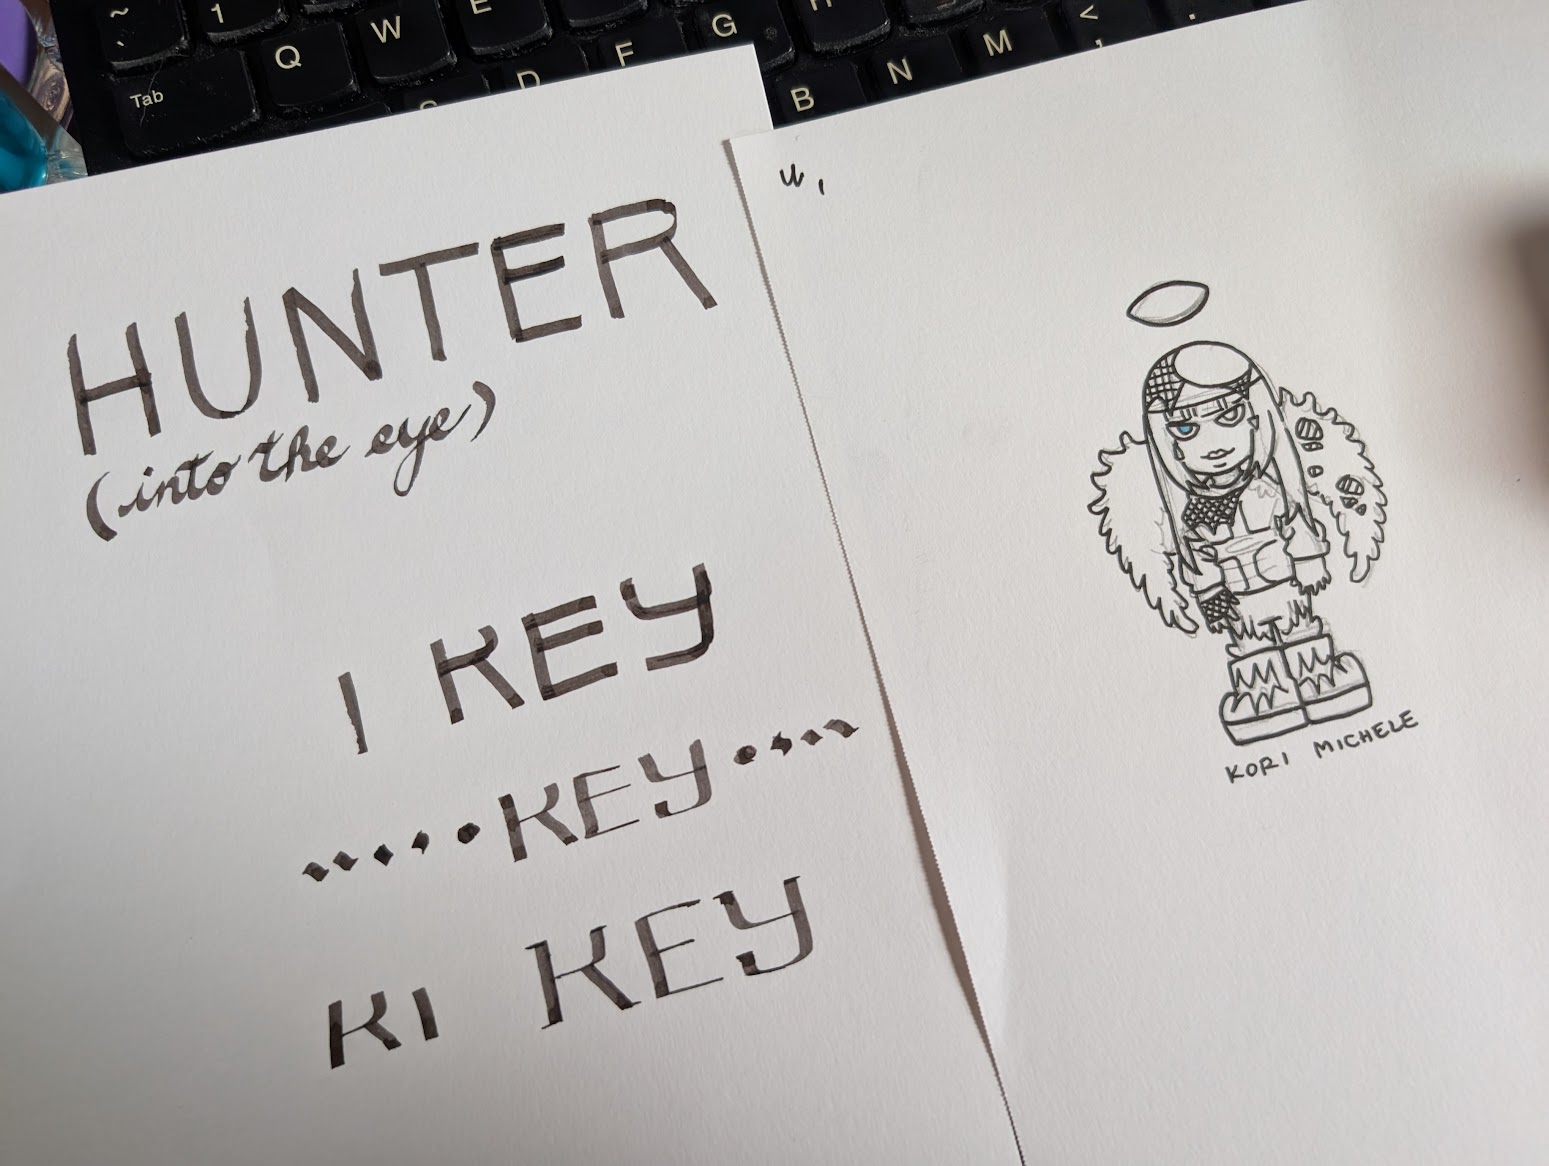 ~ 1 E
Q W G H
Tab D F B N M < , .
HUNTER
(into the eye)
I KEY
KEY
KI KEY
KORI MICHELE